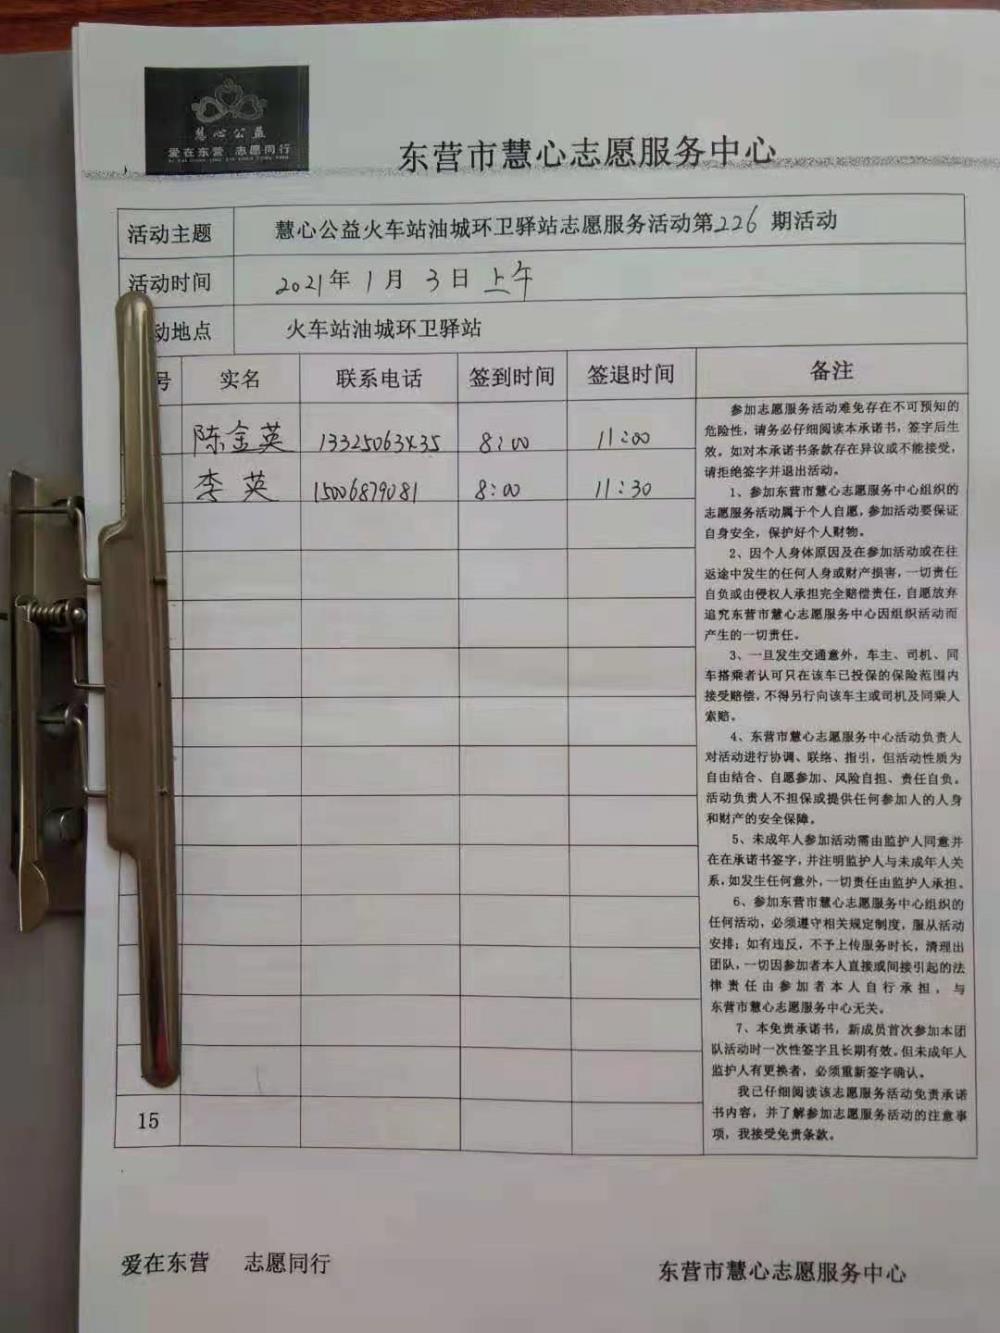 慧心公益
爱在东营 志愿同行
东营市慧心志愿服务中心
活动主题 慧心公益火车站油城环卫驿站志愿服务活动第226期活动
活动时间 2021年1月3日上午
动地点 火车站油城环卫驿站
号 实名 联系电话 签到时间 签退时间 备注
陈金英 13325063435 8:00 11:00
李英 15006879081 8:00 11:30
15
参加志愿服务活动难免存在不可预知的
危险性,请务必仔细阅读本承诺书,签字后生
效。如对本承诺书条款存在异议或不能接受,
请拒绝签字并退出活动。
1、参加东营市慧心志愿服务中心组织的
志愿服务活动属于个人自愿,参加活动要保证
自身安全,保护好个人财物。
2、因个人身体原因及在参加活动或在往
返途中发生的任何人身或财产损害,一切责任
自负或由侵权人承担完全赔偿责任,自愿放弃
追究东营市慧心志愿服务中心因组织活动而
产生的一切责任。
3、一旦发生交通意外,车主、司机、同
车搭乘者认可只在该车已投保的保险范围内
接受赔偿,不得另行向该车主或司机及同乘人
索赔。
4、东营市慧心志愿服务中心活动负责人
对活动进行协调、联络、指引,但活动性质为
自由结合、自愿参加、风险自担、责任自负。
活动负责人不担保或提供任何参加人的人身
和财产的安全保障。
5、未成年人参加活动需由监护人同意并
在在承诺书签字,并注明监护人与未成年人关
系,如发生任何意外,一切责任由监护人承担。
6、参加东营市慧心志愿服务中心组织的
任何活动,必须遵守相关规定制度,服从活动
安排;如有违反,不予上传服务时长,清理出
团队,一切因参加者本人直接或间接引起的法
律责任由参加者本人自行承担,与
东营市慧心志愿服务中心无关。
7、本免责承诺书,新成员首次参加本团
队活动时一次性签字且长期有效。但未成年人
监护人有更换者,必须重新签字确认。
我已仔细阅读该志愿服务活动免责承诺
书内容,并了解参加志愿服务活动的注意事
项,我接受免责条款。
爱在东营 志愿同行 东营市慧心志愿服务中心